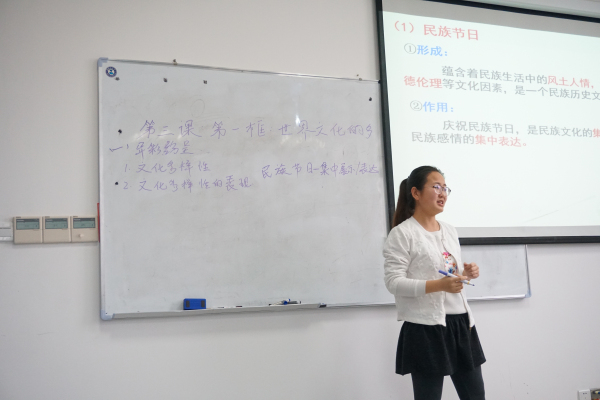 第二课 第一框 世界文化的多
异彩纷呈
1 文化多样性
民族节日-集中展示/表达
2 文化多样性的表现
(1) 民族节日
①形成:
蕴含着民族生活中的风土人情,
德伦理等文化因素,是一个民族历史文
②作用:
庆祝民族节日,是民族文化的集
民族感情的集中表达。